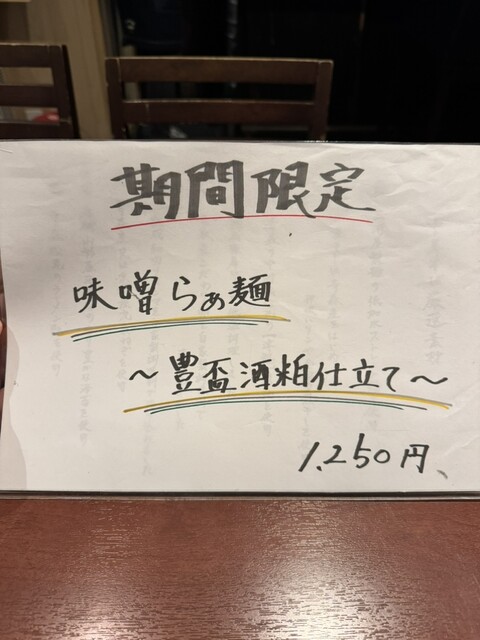 期間限定
味噌らぁ麺
～豊盃酒粕仕立て～
1,250円、